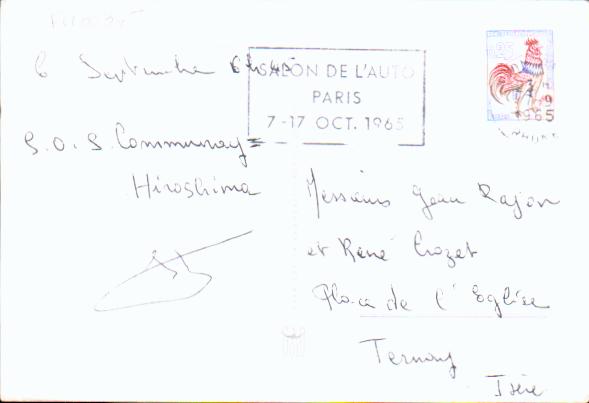 6 Septembre
SALON DE L'AUTO
PARIS
7-17 OCT. 1965
0,25
9
1965
S.O.S. Communay =
Hiroshima
Messieurs Jean Rajon
et René Crozet
Place de l'Eglise
Ternay
Isère